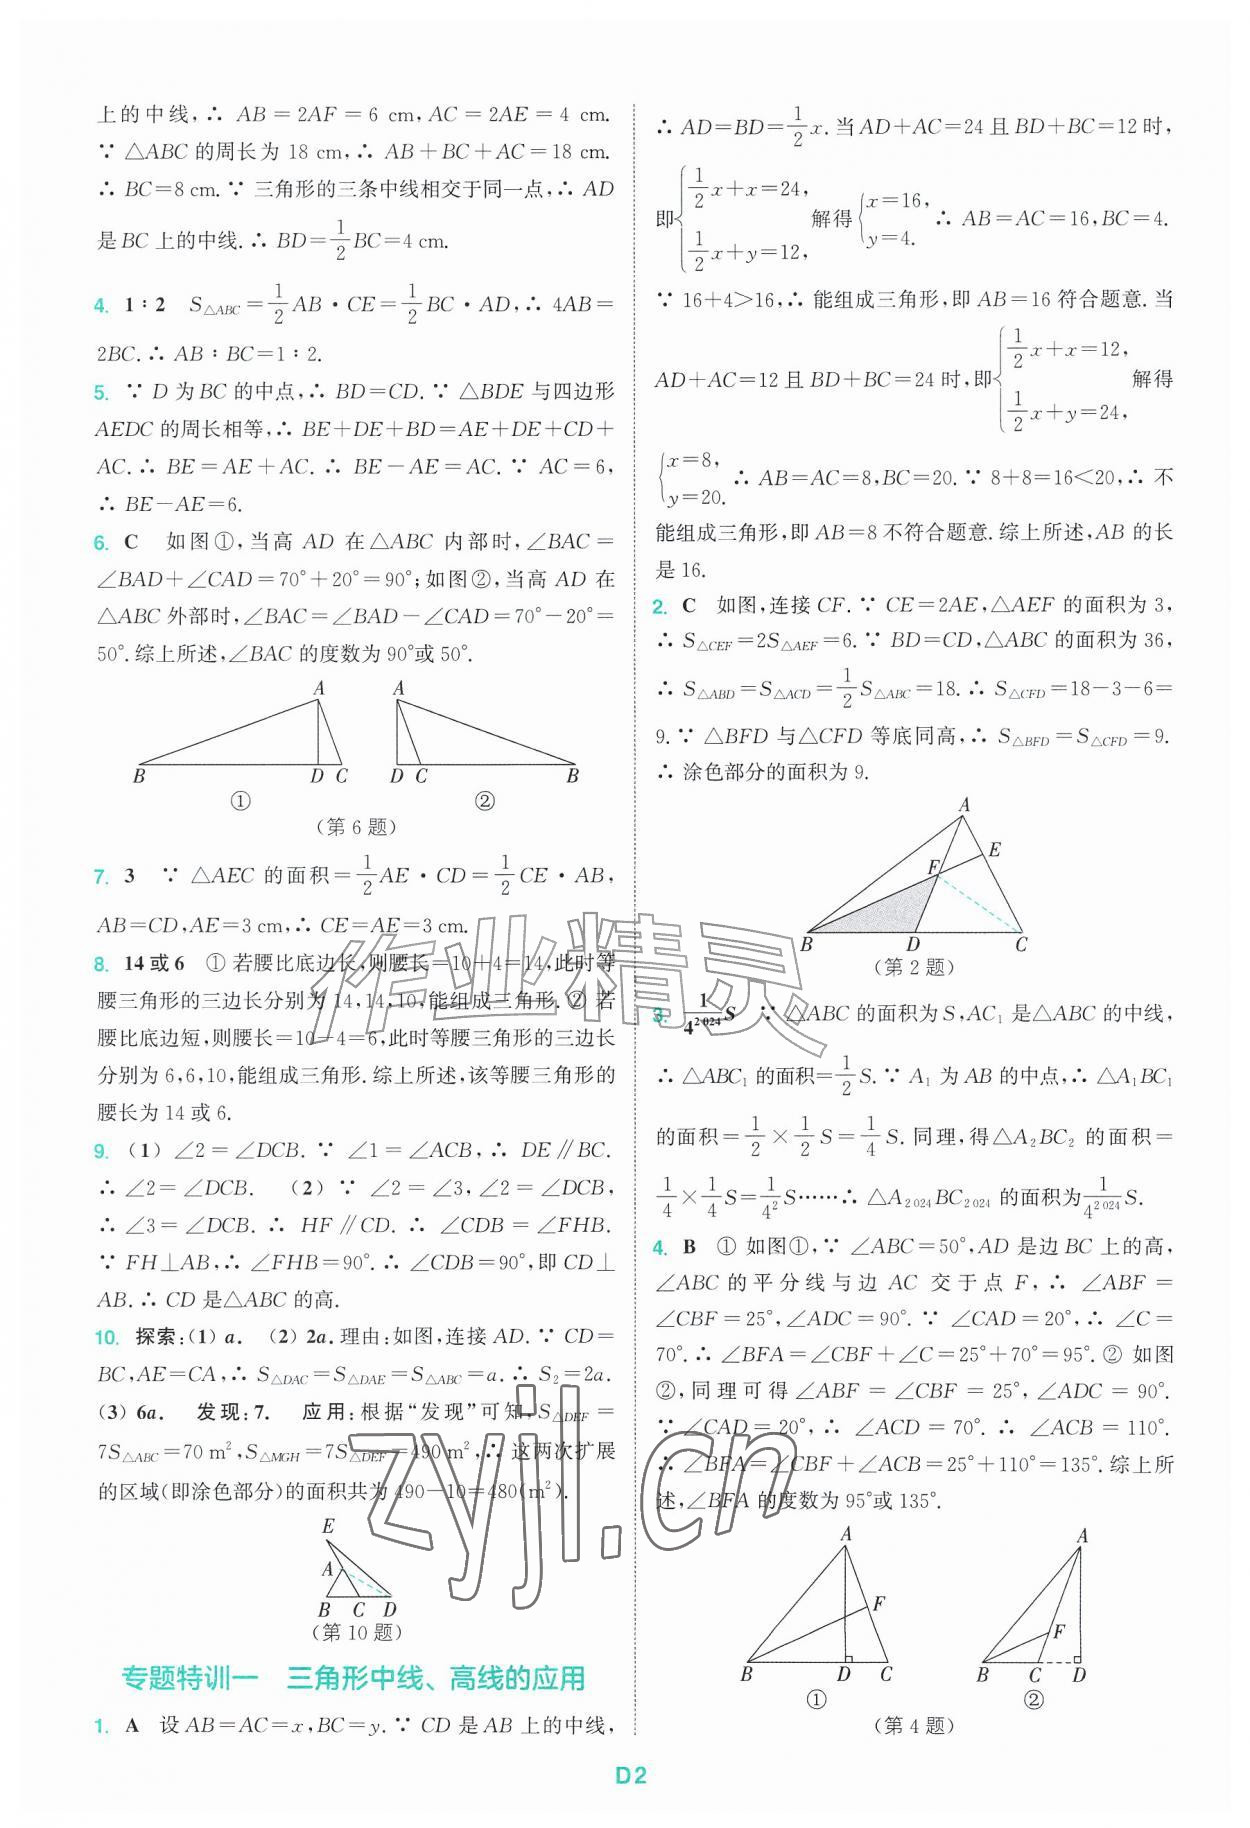 上的中线,∴ AB=2AF=6 cm,AC=2AE=4 cm.
∵ △ABC 的周长为 18 cm,∴ AB+BC+AC=18 cm.
∴ BC=8 cm.∵ 三角形的三条中线相交于同一点,∴ AD
是 BC 上的中线.∴ BD=1/2BC=4 cm.
4. 1∶2 S△ABC=1/2AB·CE=1/2BC·AD,∴ 4AB=
2BC.∴ AB∶BC=1∶2.
5. ∵ D 为 BC 的中点,∴ BD=CD.∵ △BDE 与四边形
AEDC 的周长相等,∴ BE+DE+BD=AE+DE+CD+
AC.∴ BE=AE+AC.∴ BE-AE=AC.∵ AC=6,
∴ BE-AE=6.
6. C 如图①,当高 AD 在△ABC 内部时,∠BAC=
∠BAD+∠CAD=70°+20°=90°;如图②,当高 AD 在
△ABC 外部时,∠BAC=∠BAD-∠CAD=70°-20°=
50°.综上所述,∠BAC 的度数为 90°或 50°.
A A
B D C D C B
① ②
(第 6 题)
7. 3 ∵ △AEC 的面积=1/2AE·CD=1/2CE·AB,
AB=CD,AE=3 cm,∴ CE=AE=3 cm.
8. 14 或 6 ① 若腰比底边长,则腰长=10+4=14,此时等
腰三角形的三边长分别为 14,14,10,能组成三角形.② 若
腰比底边短,则腰长=10-4=6,此时等腰三角形的三边长
分别为 6,6,10,能组成三角形.综上所述,该等腰三角形的
腰长为 14 或 6.
9. (1) ∠2=∠DCB.∵ ∠1=∠ACB,∴ DE∥BC.
∴ ∠2=∠DCB. (2) ∵ ∠2=∠3,∠2=∠DCB,
∴ ∠3=∠DCB.∴ HF∥CD.∴ ∠CDB=∠FHB.
∵ FH⊥AB,∴ ∠FHB=90°.∴ ∠CDB=90°,即 CD⊥
AB.∴ CD 是△ABC 的高.
10. 探索:(1) a. (2) 2a.理由:如图,连接 AD.∵ CD=
BC,AE=CA,∴ S△DAC=S△DAE=S△ABC=a.∴ S₂=2a.
(3) 6a. 发现:7. 应用:根据“发现”可知,S△DEF=
7S△ABC=70 m²,S△MGH=7S△DEF=490 m²,∴ 这两次扩展
的区域(即涂色部分)的面积共为 490-10=480(m²).
E
A
B C D
(第 10 题)
专题特训一 三角形中线、高线的应用
1. A 设 AB=AC=x,BC=y.∵ CD 是 AB 上的中线,
∴ AD=BD=1/2x.当 AD+AC=24 且 BD+BC=12 时,
即{1/2x+x=24, 1/2x+y=12, 解得{x=16, y=4. ∴ AB=AC=16,BC=4.
∵ 16+4>16,∴ 能组成三角形,即 AB=16 符合题意.当
AD+AC=12 且 BD+BC=24 时,即{1/2x+x=12, 1/2x+y=24, 解得
{x=8, y=20. ∴ AB=AC=8,BC=20.∵ 8+8=16<20,∴ 不
能组成三角形,即 AB=8 不符合题意.综上所述,AB 的长
是 16.
2. C 如图,连接 CF.∵ CE=2AE,△AEF 的面积为 3,
∴ S△CEF=2S△AEF=6.∵ BD=CD,△ABC 的面积为 36,
∴ S△ABD=S△ACD=1/2S△ABC=18.∴ S△CFD=18-3-6=
9.∵ △BFD 与△CFD 等底同高,∴ S△BFD=S△CFD=9.
∴ 涂色部分的面积为 9.
A
E
F
B D C
(第 2 题)
3. 1/4^2 024 S ∵ △ABC 的面积为 S,AC₁ 是△ABC 的中线,
∴ △ABC₁ 的面积=1/2S.∵ A₁ 为 AB 的中点,∴ △A₁BC₁
的面积=1/2×1/2S=1/4S.同理,得△A₂BC₂ 的面积=
1/4×1/4S=1/4²S……∴ △A₂ ₀₂₄BC₂ ₀₂₄ 的面积为1/4^2 024 S.
4. B ① 如图①,∵ ∠ABC=50°,AD 是边 BC 上的高,
∠ABC 的平分线与边 AC 交于点 F,∴ ∠ABF=
∠CBF=25°,∠ADC=90°.∵ ∠CAD=20°,∴ ∠C=
70°.∴ ∠BFA=∠CBF+∠C=25°+70°=95°.② 如图
②,同理可得∠ABF=∠CBF=25°,∠ADC=90°.
∵ ∠CAD=20°,∴ ∠ACD=70°.∴ ∠ACB=110°.
∴ ∠BFA=∠CBF+∠ACB=25°+110°=135°.综上所
述,∠BFA 的度数为 95°或 135°.
A A
F F
B D C B C D
① ②
(第 4 题)
作业精灵
zyjl.cn
D2